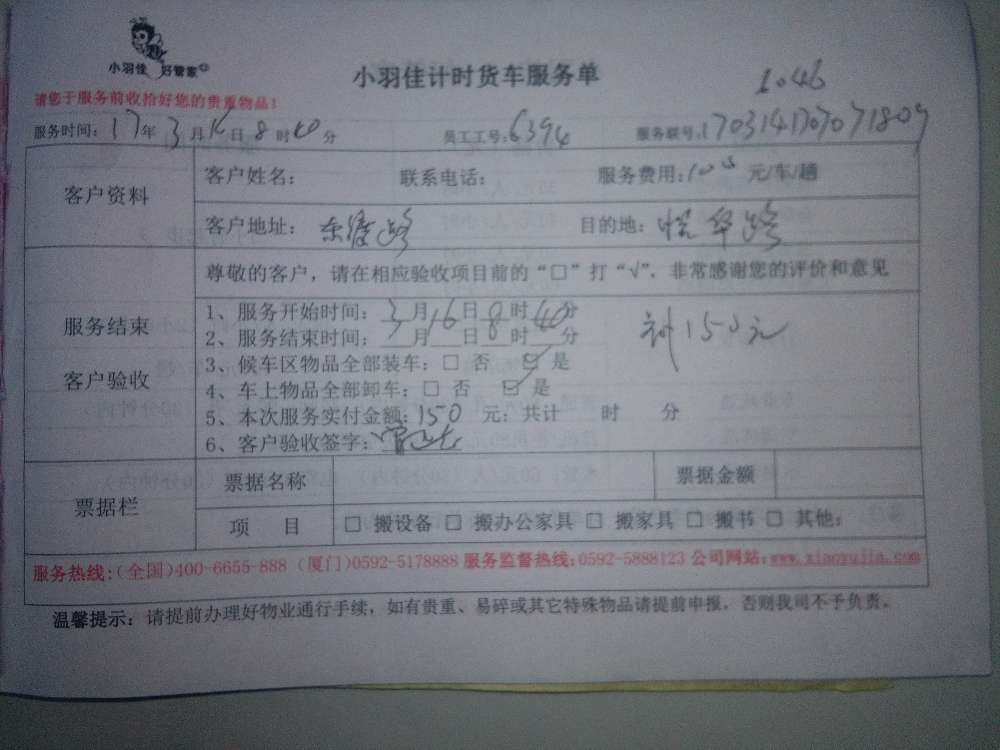 小羽佳 好管家
小羽佳计时货车服务单
1046
请您于服务前收拾好您的贵重物品！
服务时间：17年3月16日8时40分 员工工号：6394 服务联号：
客户资料
客户姓名： 联系电话： 服务费用： 元/车/趟
客户地址： 路 目的地： 华路
尊敬的客户，请在相应验收项目前的“□”打“√”，非常感谢您的评价和意见
服务结束
客户验收
1、服务开始时间：3月16日8时40分
2、服务结束时间： 月 日 时 分
150元
3、候车区物品全部装车：□ 否 ☑ 是
4、车上物品全部卸车：□ 否 ☑ 是
5、本次服务实付金额：150 元；共计 时 分
6、客户验收签字：
票据栏
票据名称 票据金额
项 目 □ 搬设备 □ 搬办公家具 □ 搬家具 □ 搬书 □ 其他：
服务热线：(全国)400-6655-888 (厦门)0592-5178888 服务监督热线：0592-5888123 公司网站：www.xiaoyujia.com
温馨提示：请提前办理好物业通行手续，如有贵重、易碎或其它特殊物品请提前申报，否则我司不予负责。